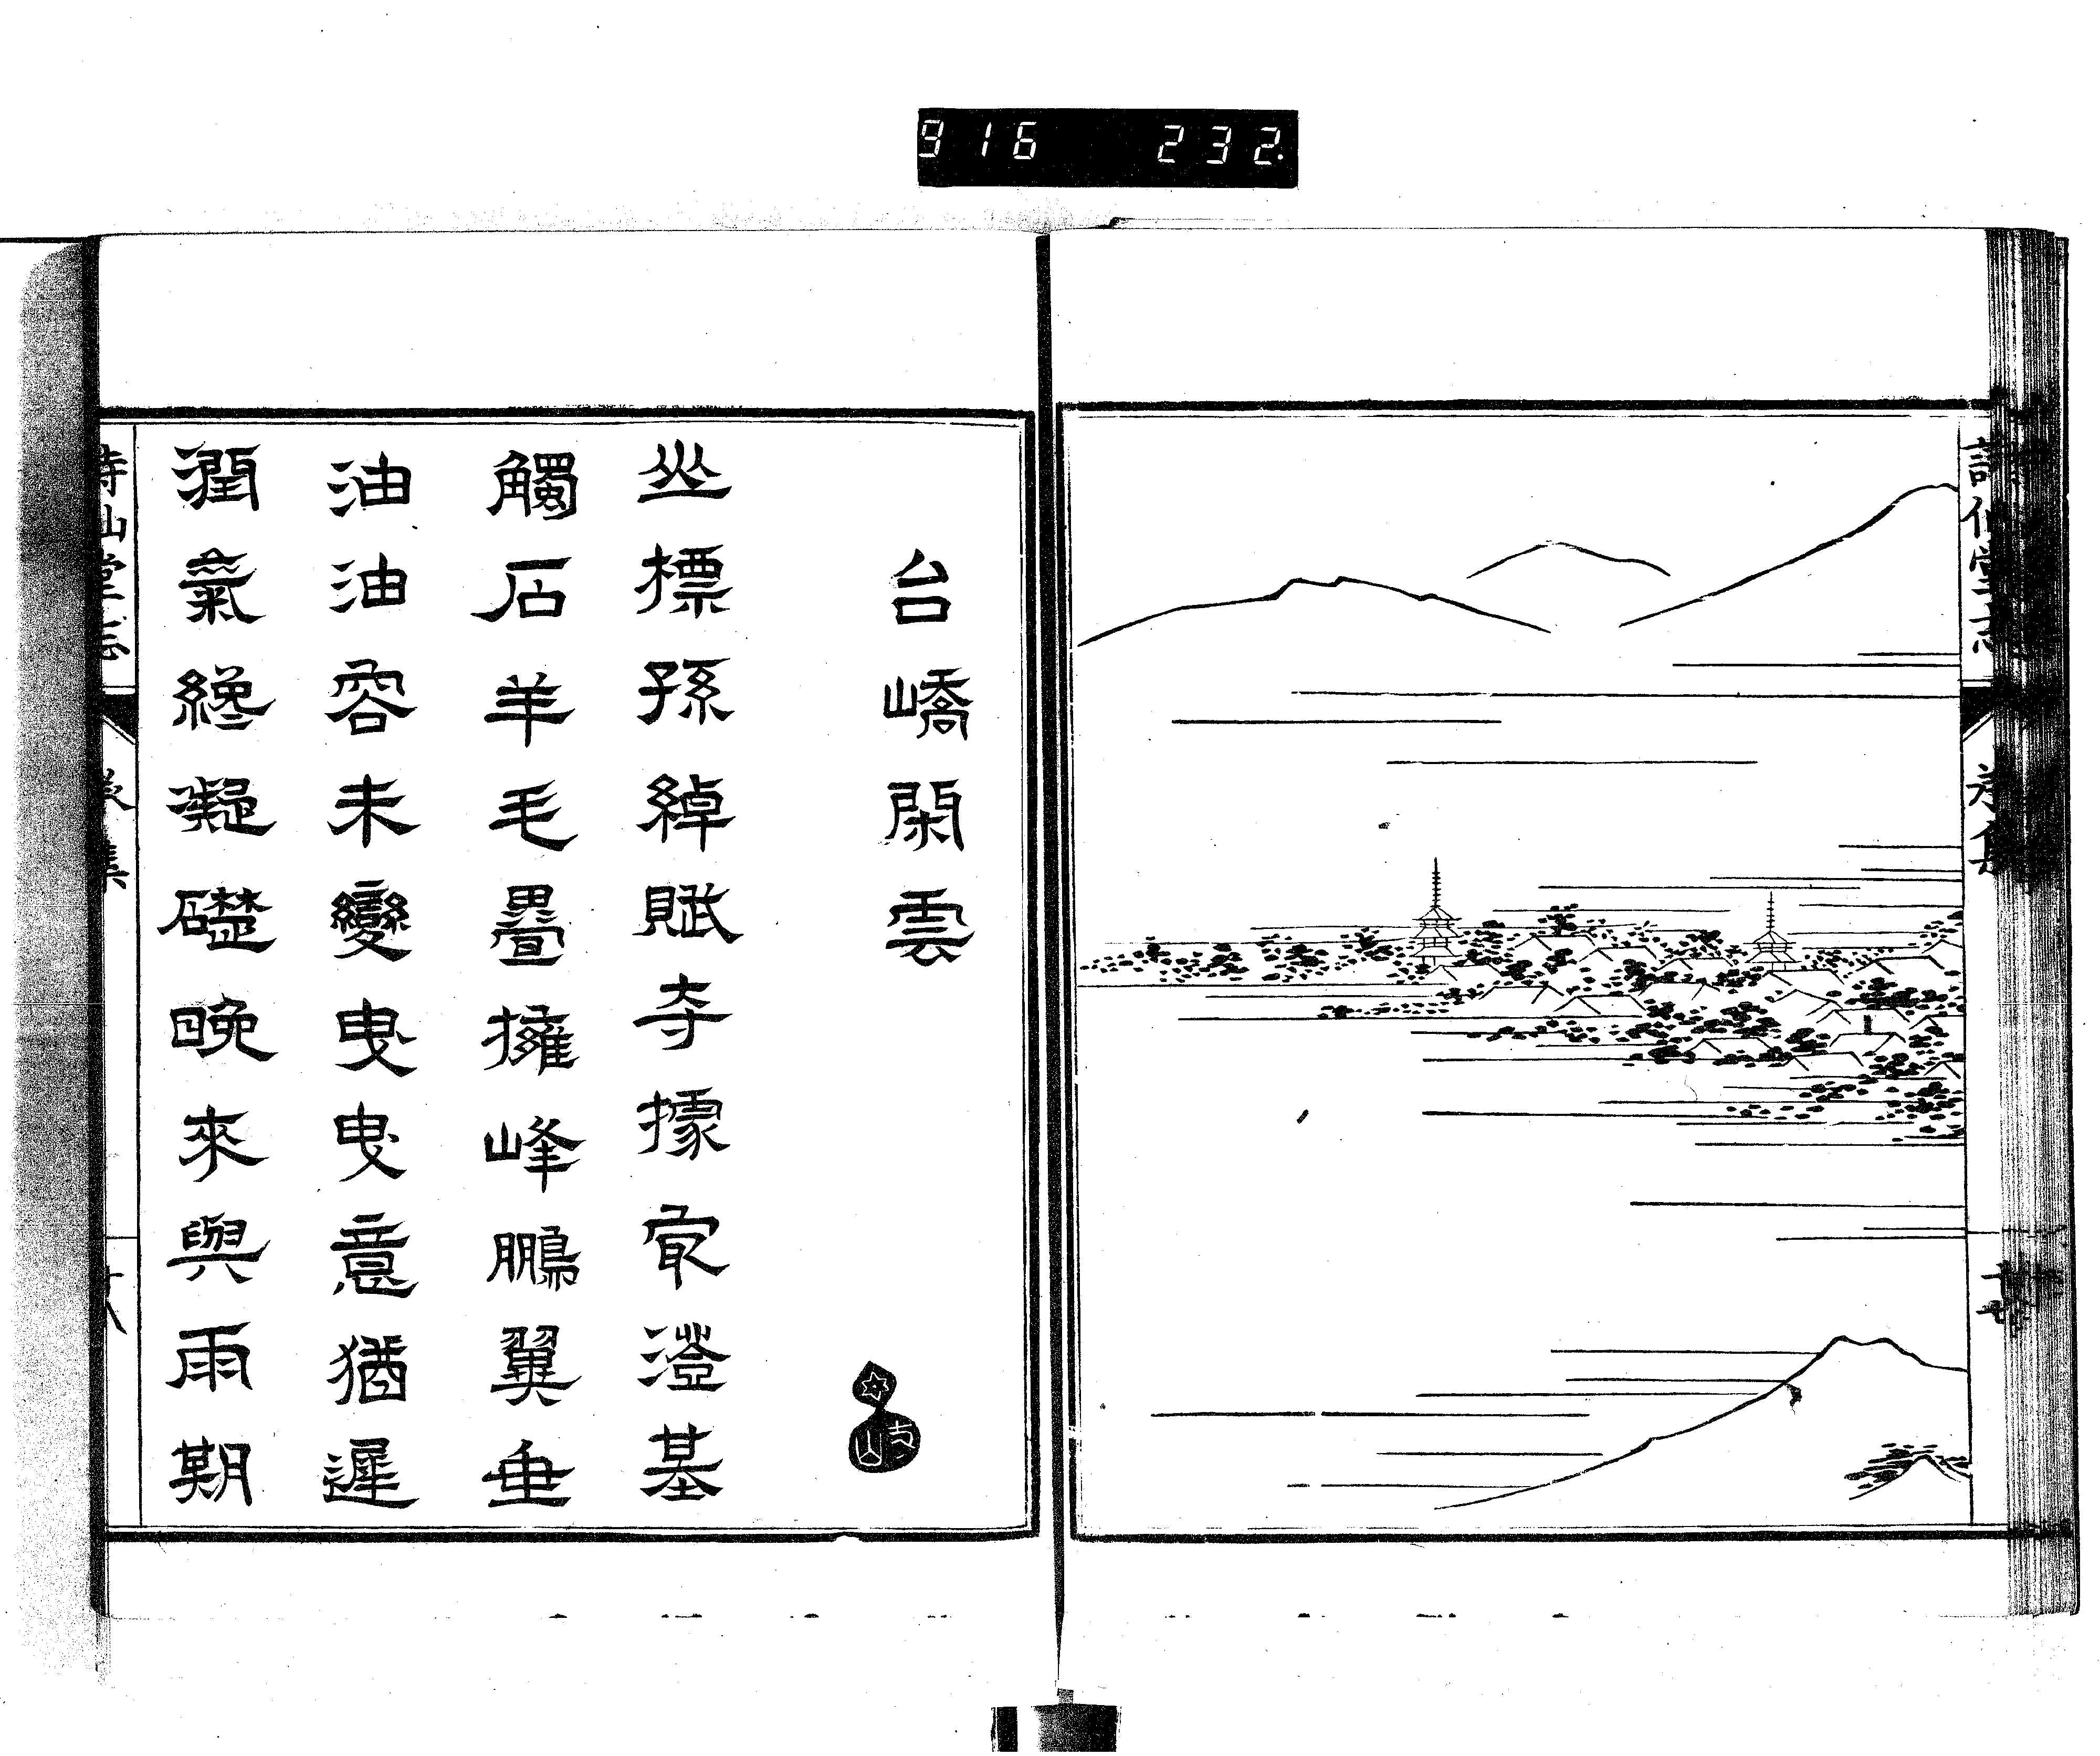 916 232
詩仙堂志
台嶠閑雲
山標孫綽賦寺據冣澄基
觸石羊毛疊擁峰鵬翼垂
油油容未變曳曳意猶遲
潤氣纔凝礎晚來與雨期
詩仙堂志